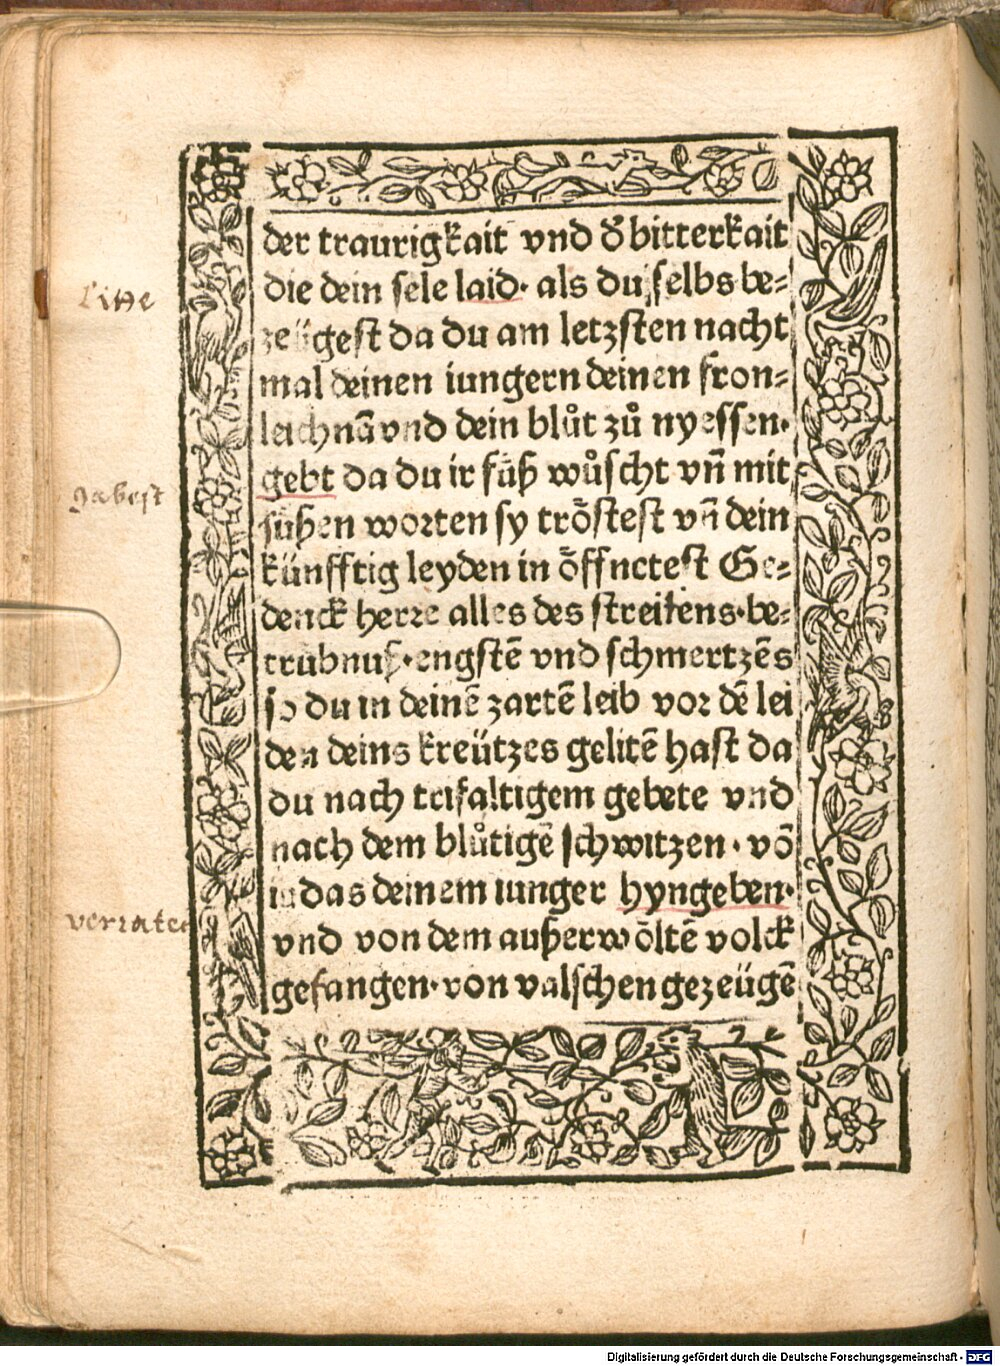 der traurigkait vnd d̕ bitterkait
die dein sele laid· als du selbs be⸗
Litte
zeügest da du am letzsten nacht
mal deinen iungern deinen fron⸗
leichnā vnd dein blůt zů nyessen·
gebt da du ir füß wůscht vn̄ mit
gabest
süßen worten sy tröstest vn̄ dein
künfftig leyden in öffnetest Ge⸗
denck herre alles des streitens·be⸗
trübnuß·engstē vnd schmertzēs
so du in deinē zartē leib vor dē lei
den deins kreützes gelitē hast da
du nach trifaltigem gebete vnd
nach dem blůtigē schwitzen· vō
iudas deinem iunger hyngeben·
verraten
vnd von dem außerwöltē volck
gefangen·von valschen gezeügē
Digitalisierung gefördert durch die Deutsche Forschungsgemeinschaft - DFG